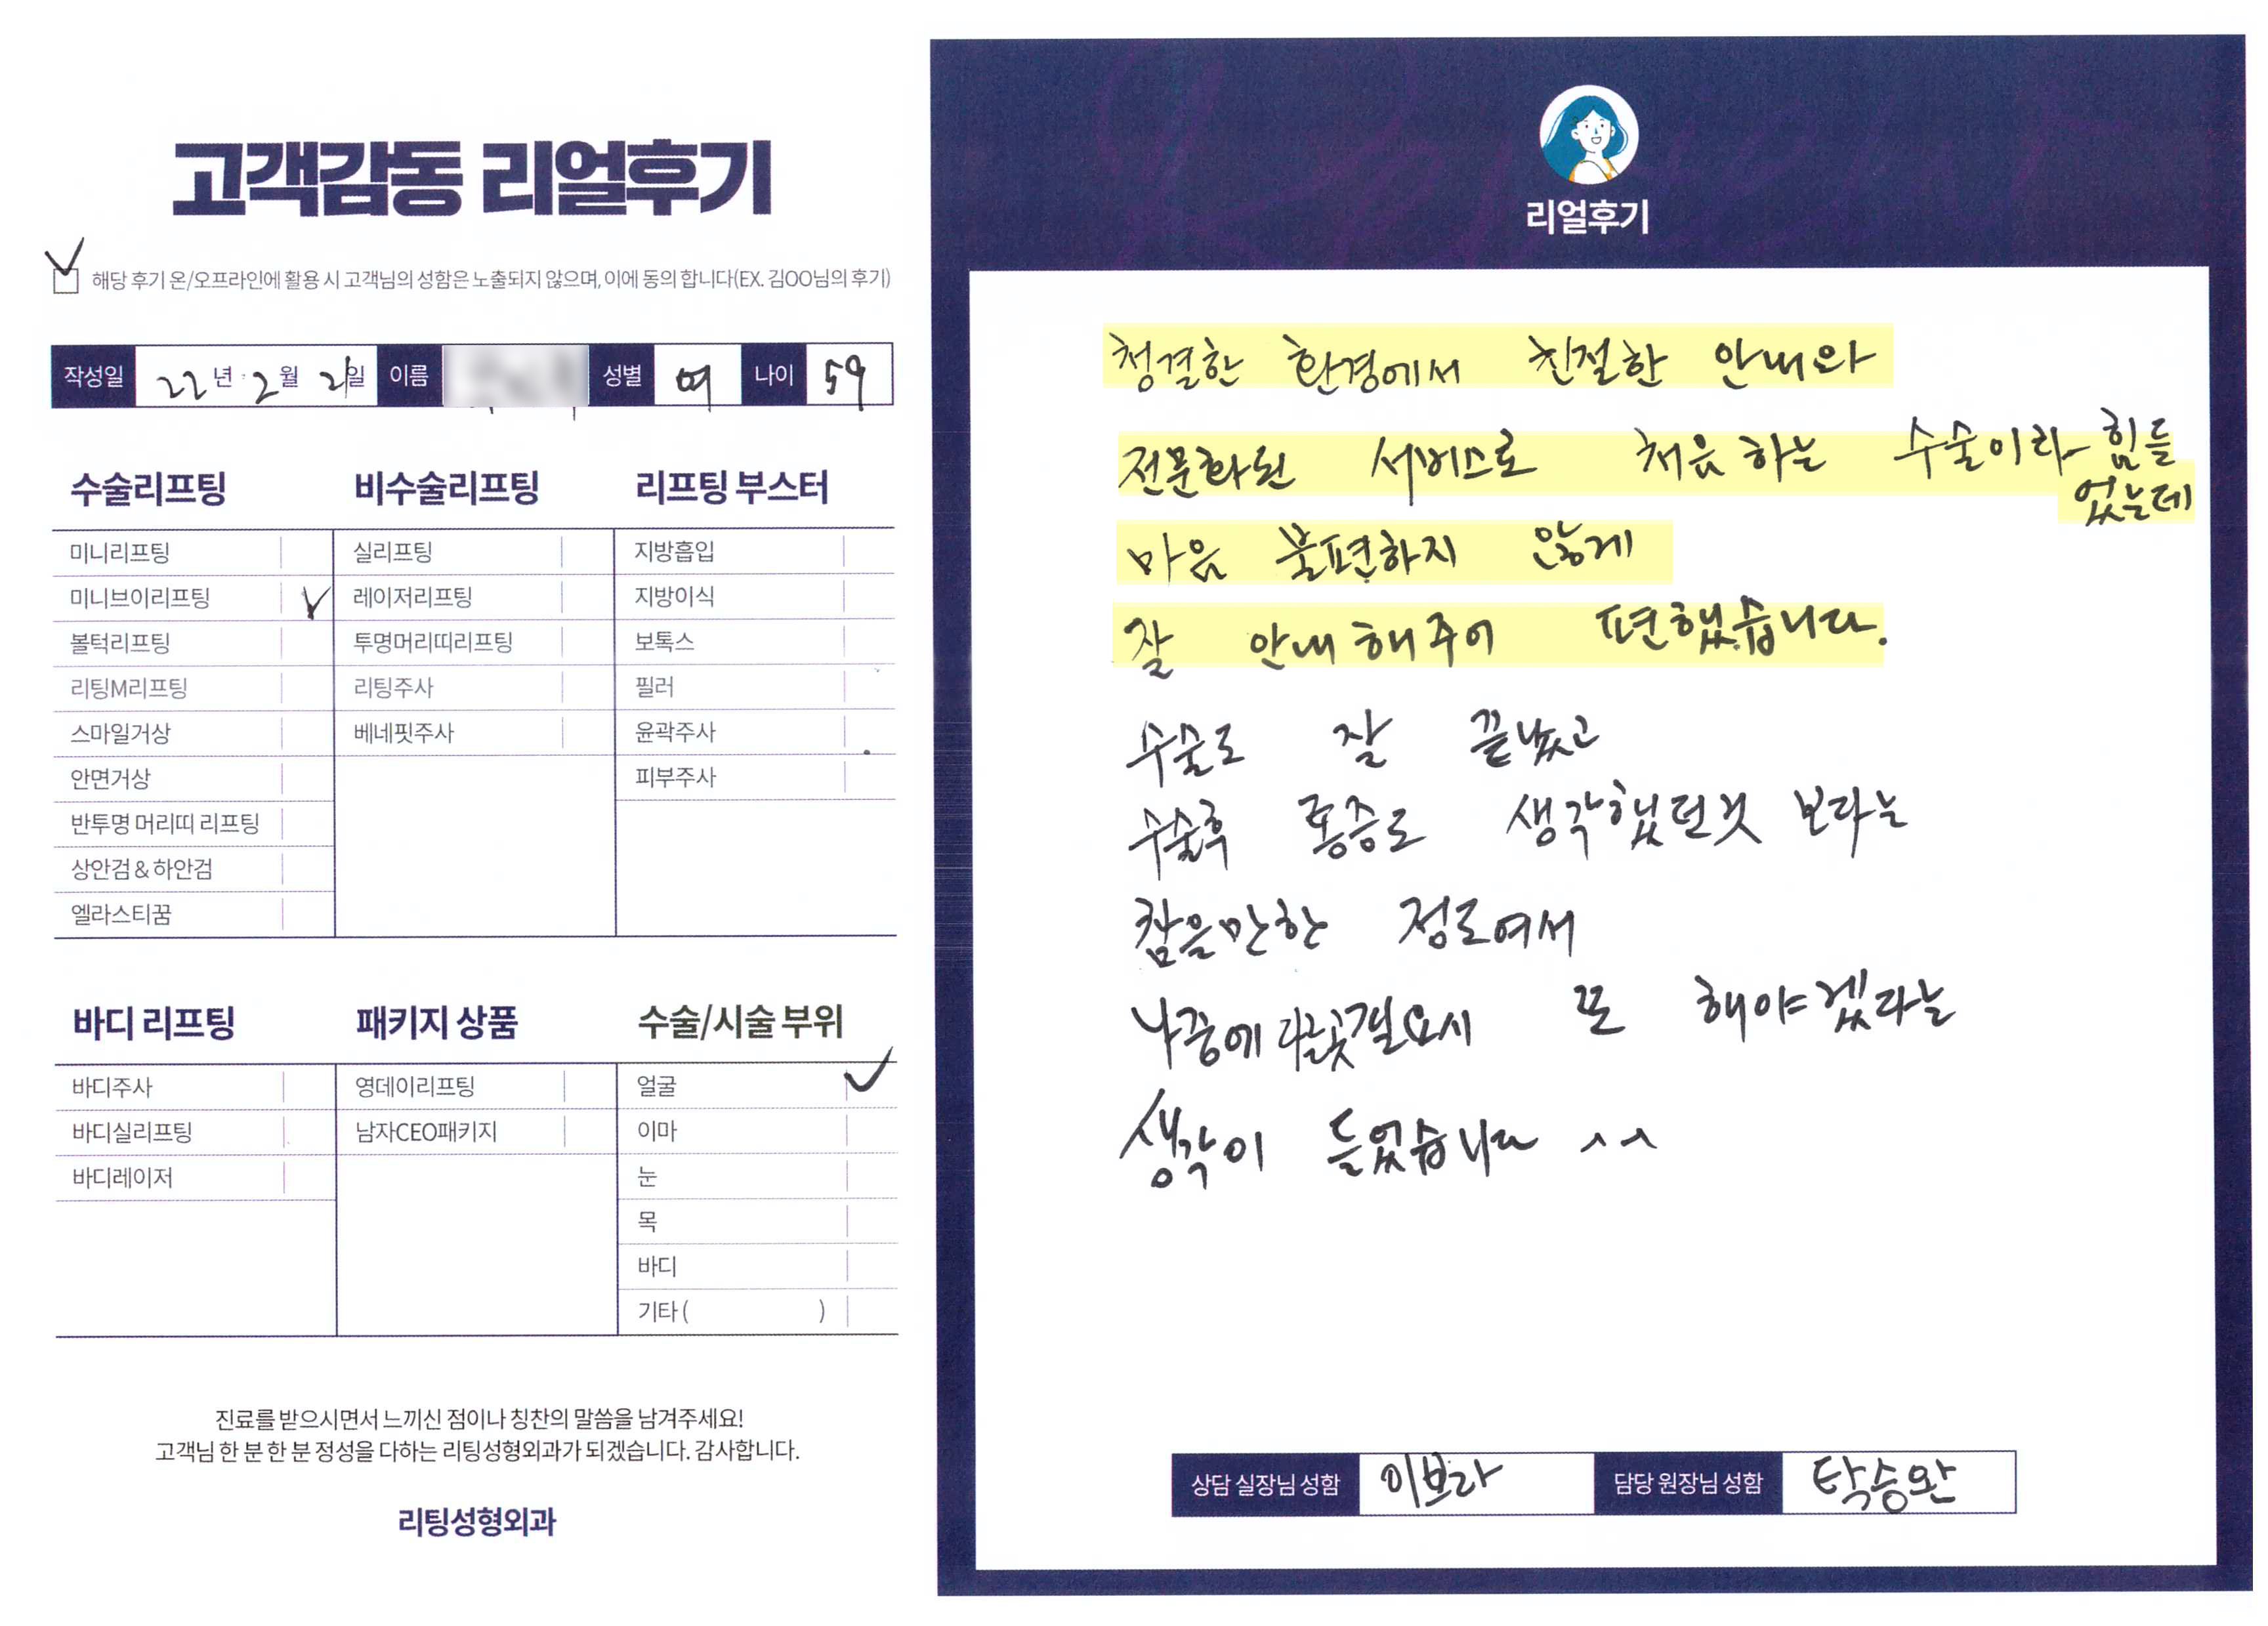 고객감동 리얼후기
해당 후기 온/오프라인에 활용 시 고객님의 성함은 노출되지 않으며, 이에 동의 합니다(EX. 김OO님의 후기)
작성일 22년 2월 21일 이름 성별 여 나이 59
수술리프팅
미니리프팅
미니브이리프팅
볼턱리프팅
리팅M리프팅
스마일거상
안면거상
반투명 머리띠 리프팅
상안검 & 하안검
엘라스티꿈
비수술리프팅
실리프팅
레이저리프팅
투명머리띠리프팅
리팅주사
베네핏주사
리프팅 부스터
지방흡입
지방이식
보톡스
필러
윤곽주사
피부주사
바디 리프팅
바디주사
바디실리프팅
바디레이저
패키지 상품
영데이리프팅
남자CEO패키지
수술/시술 부위
얼굴
이마
눈
목
바디
기타 ( )
진료를 받으시면서 느끼신 점이나 칭찬의 말씀을 남겨주세요!
고객님 한 분 한 분 정성을 다하는 리팅성형외과가 되겠습니다. 감사합니다.
리팅성형외과
리얼후기
청결한 환경에서 친절한 안내와
전문화된 서비스로 처음 하는 수술이라 힘들
었는데
마음 불편하지 않게
잘 안내해주어 편했습니다.
수술도 잘 끝났고
수술후 통증도 생각했던것 보다는
참을만한 정도여서
나중에 필요시 또 해야겠다는
생각이 들었습니다 ^^
상담 실장님 성함 이보라 담당 원장님 성함 탁승완